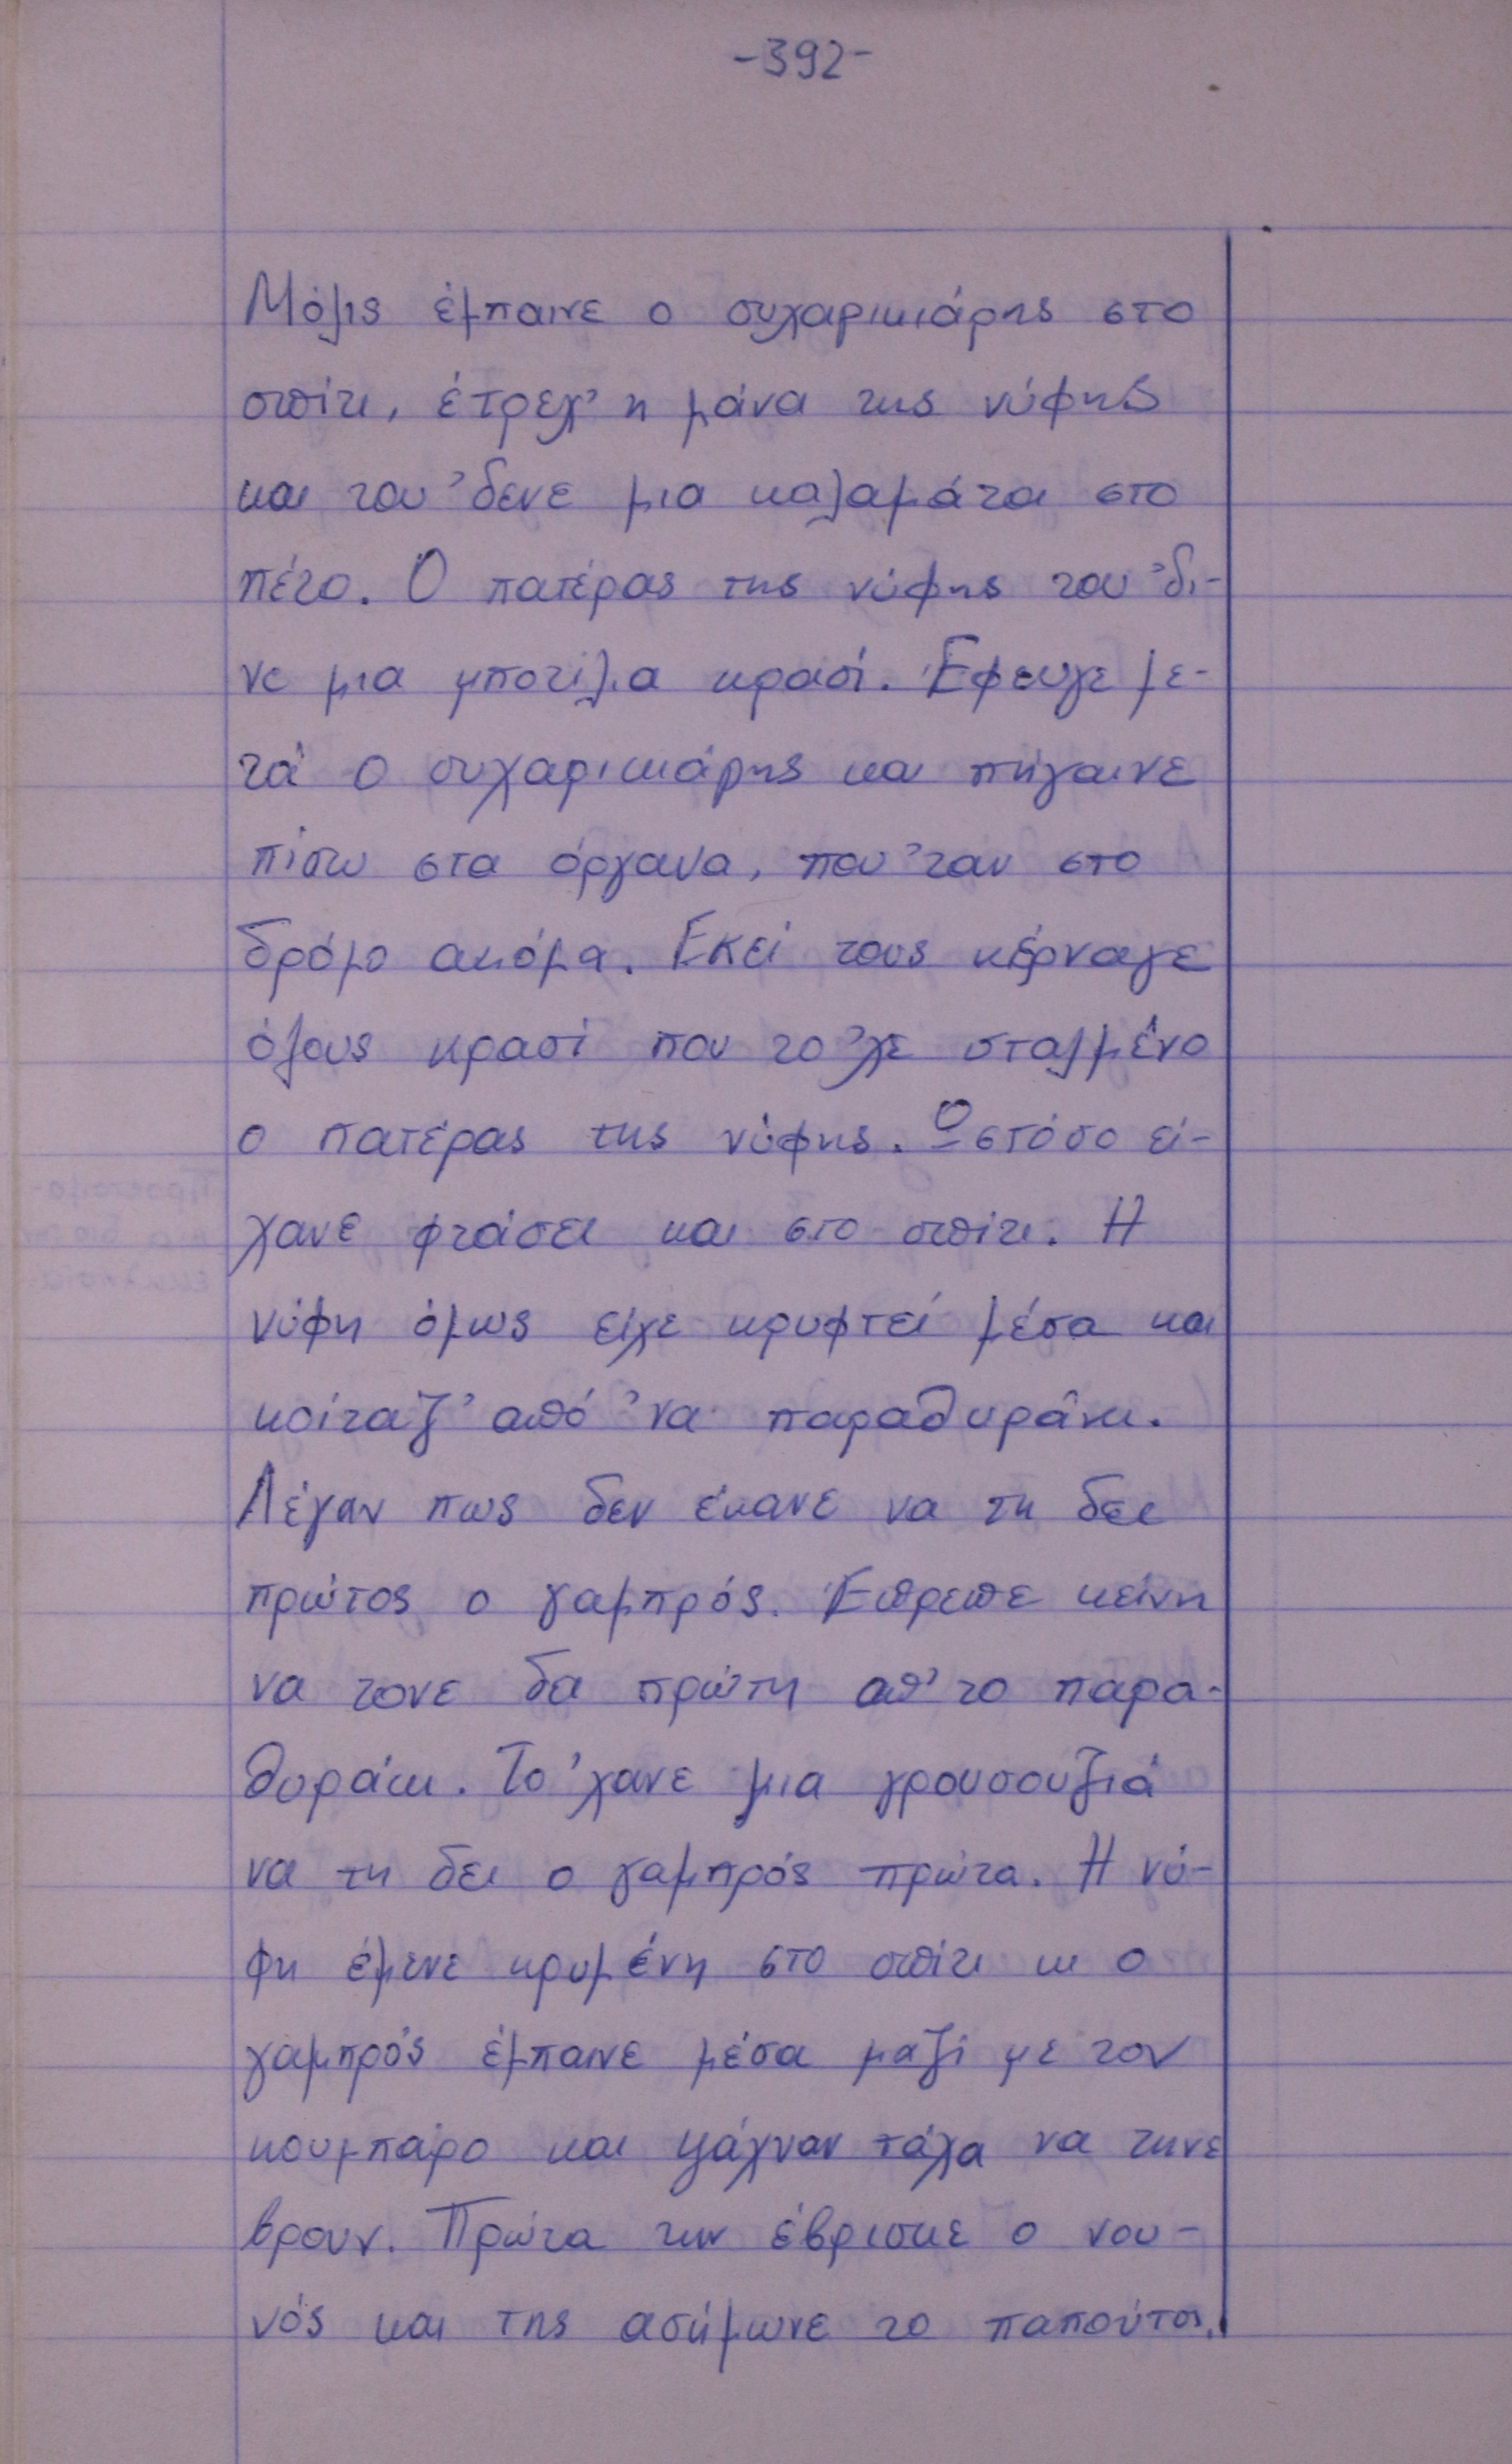 -392-
Μόλις έμπαινε ο συχαρικιάρης στο
σπίτι, έτρεχ' η μάνα της νύφης
και του 'δενε μια καλαμάτα στο
πέτο. Ο πατέρας της νύφης του 'δι-
νε μια μποτίλια κρασί. Έφευγε με-
τά ο συχαρικιάρης και πήγαινε
πίσω στα όργανα, που 'ταν στο
δρόμο ακόμα. Εκεί τους κέρναγε
όλους κρασί που το 'χε σταλμένο
ο πατέρας της νύφης. Ωστόσο εί-
χανε φτάσει και στο σπίτι. Η
νύφη όμως είχε κρυφτεί μέσα και
κοίταζ' από 'να παραθυράκι.
Λέγαν πως δεν έκανε να τη δει
πρώτος ο γαμπρός. Έπρεπε κείνη
να τονε δα πρώτη απ' το παρα-
θυράκι. Το 'χανε μια γρουσουζιά
να τη δει ο γαμπρός πρώτα. Η νύ-
φη έμενε κρυμένη στο σπίτι κι ο
γαμπρός έμπαινε μέσα μαζί με τον
κουμπάρο και ψάχναν τάχα να τηνε
βρουν. Πρώτα την έβρισκε ο νου-
νός και της ασήμωνε το παπούτσι.